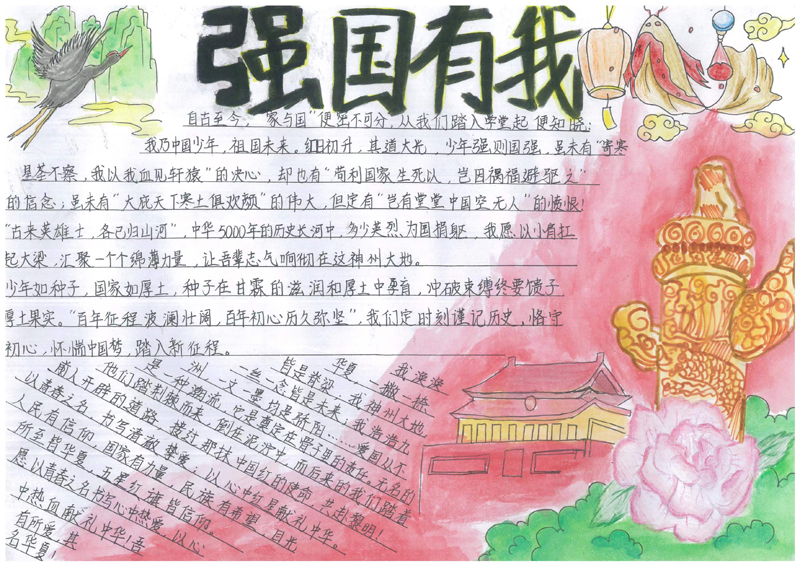 强国有我
自古至今，“家与国”便密不可分，从我们踏入学堂起便知晓：
我乃中国少年，祖国未来。红日初升，其道大光，少年强则国强，虽未有“寄寒
星荃不察，我以我血见轩辕”的决心，却也有“苟利国家生死以，岂因祸福避驱之”
的信念；虽未有“大庇天下寒土俱欢颜”的伟大，但定有“岂有堂堂中国空无人”的愤恨！
“古来英雄士，各已归山河”，中华5000年的历史长河中，多少英烈为国捐躯，我愿以小肩扛
起大梁，汇聚一个个绵薄力量，让吾辈志气响彻在这神州大地。
少年如种子，国家如厚土，种子在甘霖的滋润和厚土中孕育，冲破束缚终要馈予
厚土果实。“百年征程波澜壮阔，百年初心历久弥坚”，我们定时刻谨记历史，恪守
初心，怀惴中国梦，踏入新征程。
我泱泱
华夏，一撇一捺
皆是脊梁，我神州大地
一丝一念皆是未来，我海清
一文一墨均是骄阳……爱国从不
是一种潮流，它是奠定在骨子里的责任。无名的
他们踏荆棘而来，倒在泥泞中，而后来的我们踏着
前人开辟的道路，接过那抹中国红的使命，共迎黎明！
以青春之名，书写清澈挚爱，以心中红星献礼中华。
人民有信仰，国家有力量，民族有希望，目光
所至皆华夏，五星红旗皆信仰。
愿以青春之名书写心中热爱，以心
中热血献礼中华！吾
有所爱，其
名华夏！